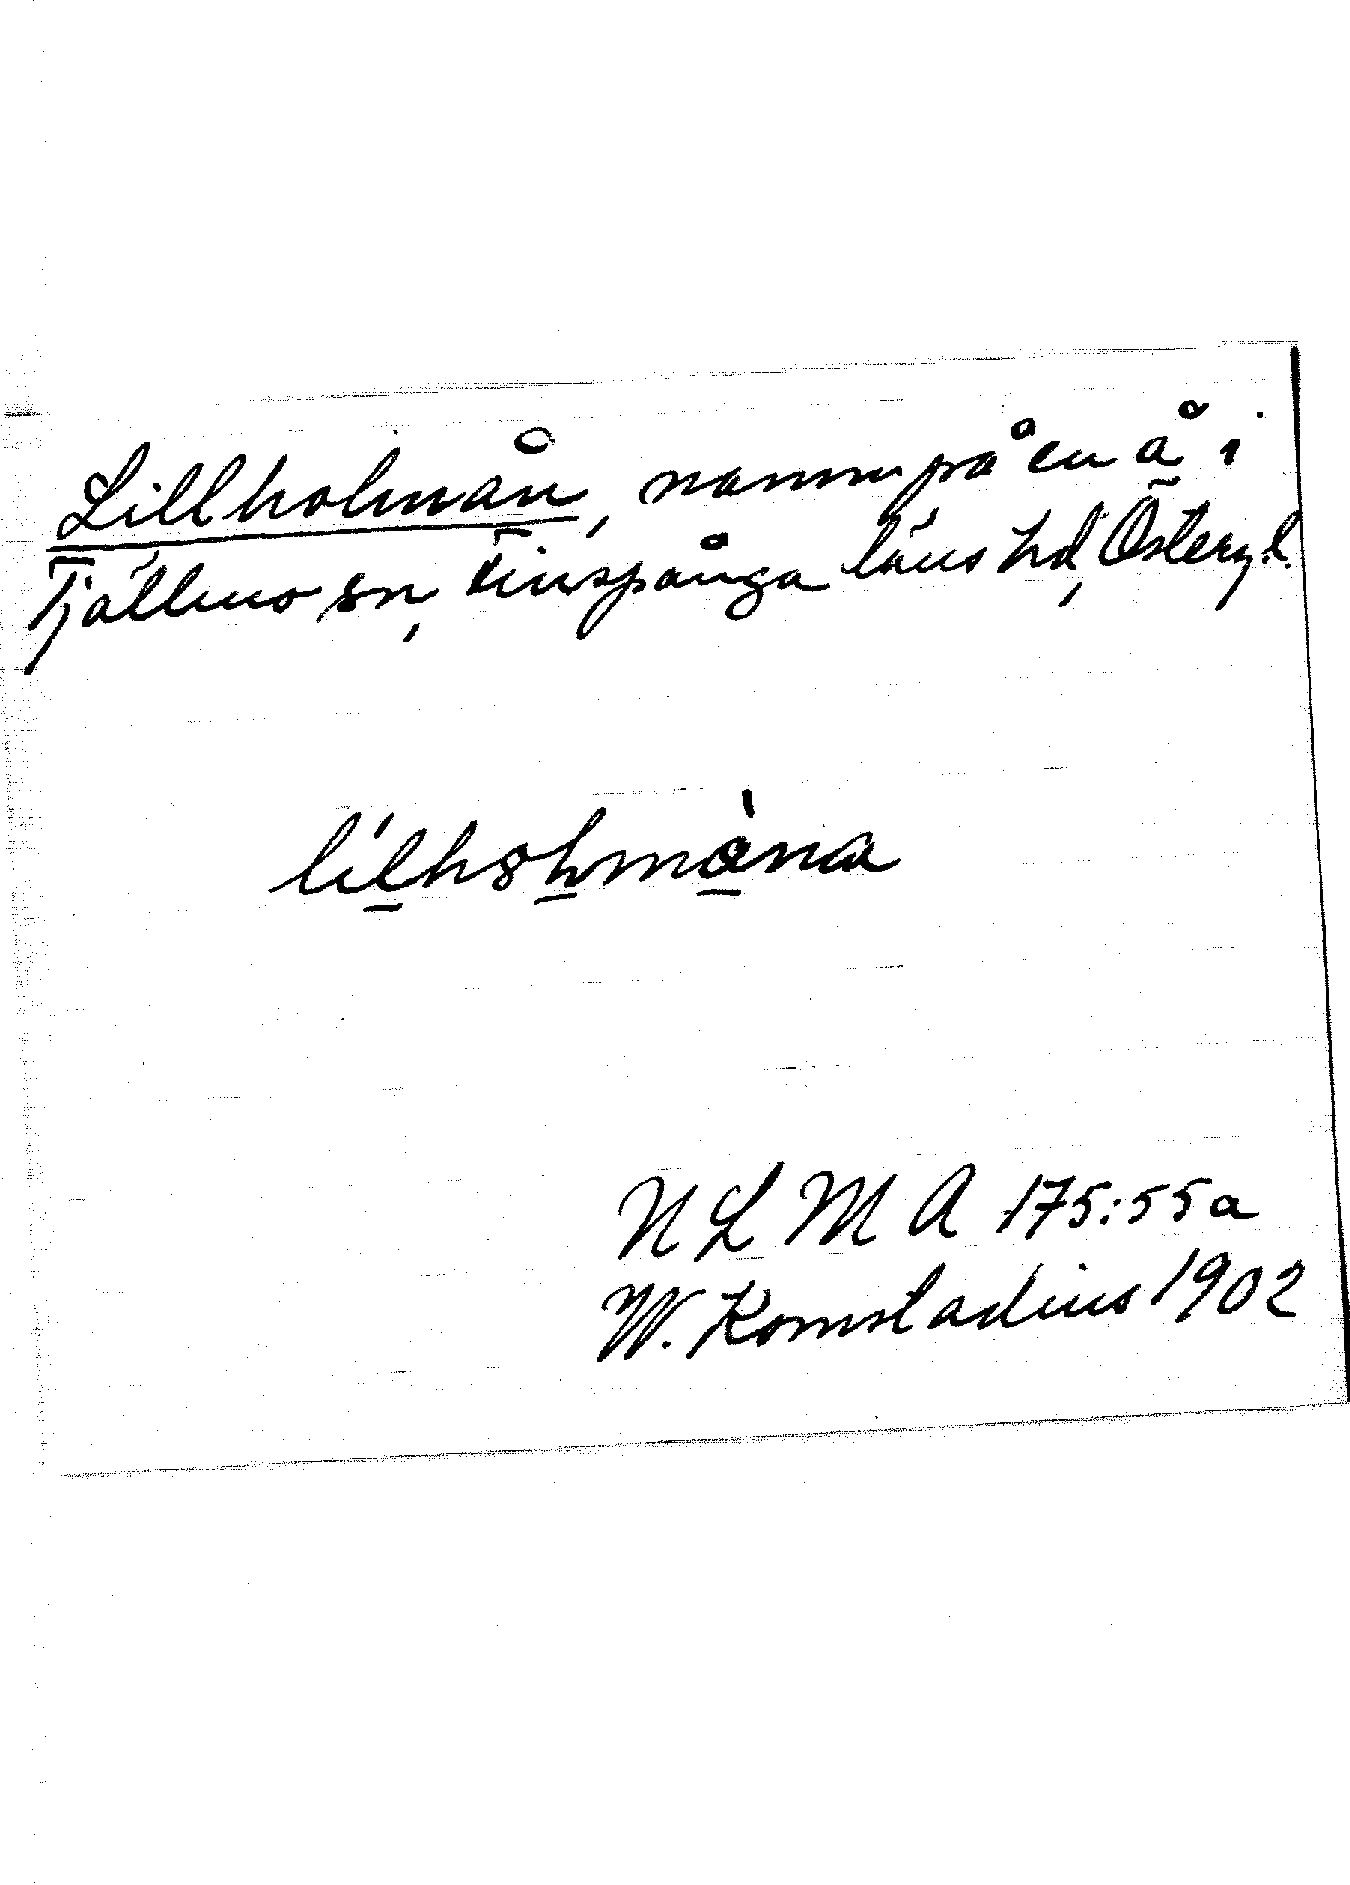 Lillholmån, namn på en å i
Tjällmo sn, Finspånga läns hd, Östergl.
N L M A 175:55a
W. Komstadius 1902